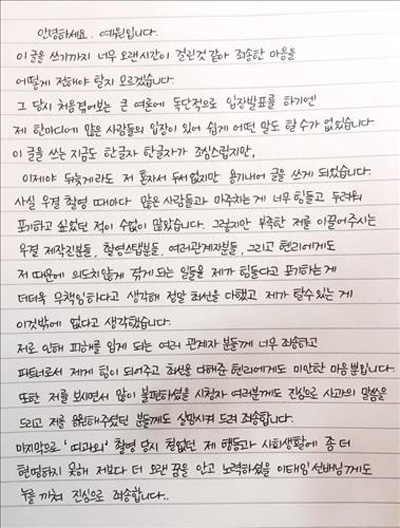 안녕하세요. 예원입니다.
이 글을 쓰기까지 너무 오랜시간이 걸린것 같아 죄송한 마음을
어떻게 전해야 할지 모르겠습니다.
그 당시 처음겪어보는 큰 여론에 독단적으로 입장발표를 하기엔
제 한마디에 많은 사람들의 입장이 있어 쉽게 어떤 말도 할 수가 없었습니다
이 글을 쓰는 지금도 한글자 한글자가 조심스럽지만,
이제야 뒤늦게라도 저 혼자서 두서없지만 용기내어 글을 쓰게 되었습니다.
사실 우결 촬영 때마다 많은 사람들과 마주치는 게 너무 힘들고 두려워
포기하고 싶었던 적이 수없이 많았습니다. 그렇지만 부족한 저를 이끌어주시는
우결 제작진분들, 촬영스탭분들, 여러관계자분들, 그리고 헨리에게도
저 때문에 의도치않게 겪게 되는 일들을 제가 힘들다고 포기하는 게
더더욱 무책임하다고 생각해 정말 최선을 다했고 제가 할수있는 게
이것밖에 없다고 생각했습니다.
저로 인해 피해를 입게 되는 여러 관계자 분들께 너무 죄송하고
파트너로서 제게 힘이 되어주고 최선을 다해준 헨리에게도 미안한 마음뿐입니다.
또한 저를 보시면서 많이 불편하셨을 시청자 여러분께도 진심으로 사과의 말씀을
드리고 저를 응원해주셨던 분들께도 실망시켜 드려 죄송합니다.
마지막으로 '띠과외' 촬영 당시 철없던 제 행동과 사회생활에 좀 더
현명하지 못해 저보다 더 오랜 꿈을 안고 노력하셨을 이태임선배님께도
누를 끼쳐 진심으로 죄송합니다..